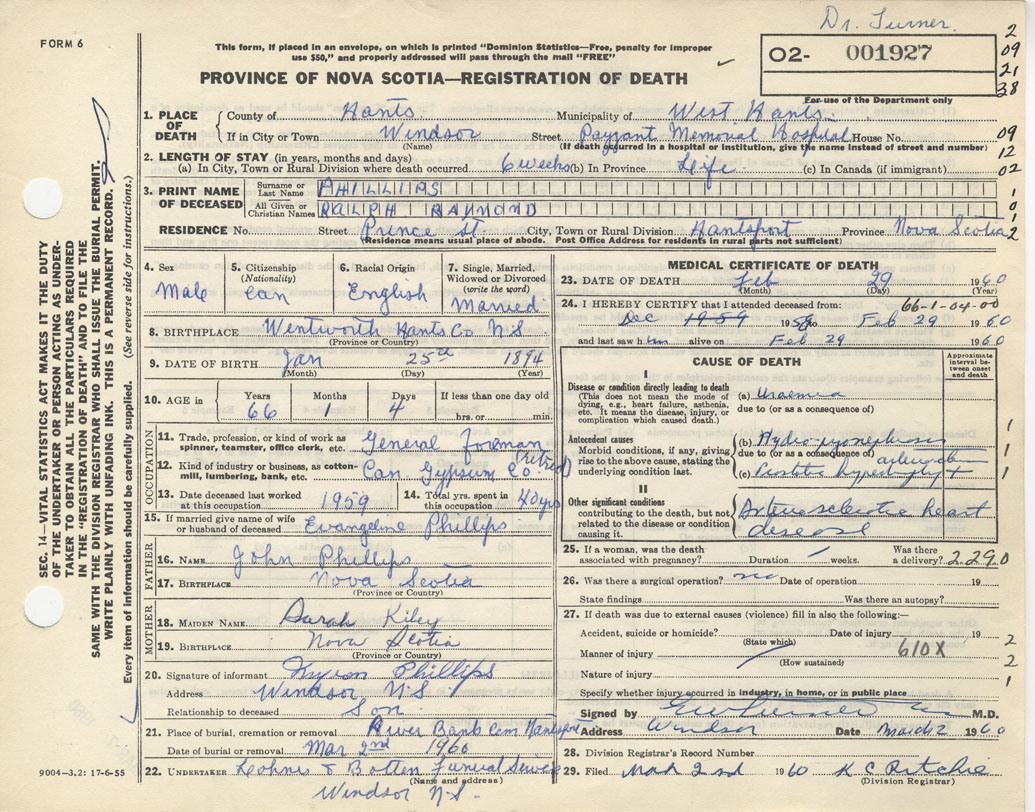 Dr. Turner
FORM 6
This form, if placed in an envelope, on which is printed "Dominion Statistics—Free, penalty for improper
use $50," and properly addressed will pass through the mail "FREE"
PROVINCE OF NOVA SCOTIA—REGISTRATION OF DEATH
02- 001927
For use of the Department only
2
09
21
38
1. PLACE OF DEATH
County of Hants Municipality of West Hants
If in City or Town Windsor Street Payzant Memorial Hospital House No.
(Name) (If death occurred in a hospital or institution, give the name instead of street and number)
09
12
02
2. LENGTH OF STAY (in years, months and days)
(a) In City, Town or Rural Division where death occurred 6 weeks (b) In Province Life (c) In Canada (if immigrant)
3. PRINT NAME OF DECEASED
Surname or Last Name PHILLIPS
All Given or Christian Names RALPH RAYMOND
1
0
1
2
RESIDENCE No. Street Prince St. City, Town or Rural Division Hantsport Province Nova Scotia
(Residence means usual place of abode. Post Office Address for residents in rural parts not sufficient)
4. Sex
Male
5. Citizenship
(Nationality)
Can
6. Racial Origin
English
7. Single, Married,
Widowed or Divorced
(write the word)
Married
8. BIRTHPLACE Wentworth Hants Co N.S.
(Province or Country)
9. DATE OF BIRTH Jan 25th 1894
(Month) (Day) (Year)
10. AGE in Years Months Days If less than one day old
66 1 4 hrs. or min.
OCCUPATION
11. Trade, profession, or kind of work as
spinner, teamster, office clerk, etc. General Forman
(retired)
12. Kind of industry or business, as cotton-
mill, lumbering, bank, etc. Can. Gypsum Co
13. Date deceased last worked
at this occupation 1959
14. Total yrs. spent in
this occupation 40 yrs
15. If married give name of wife
or husband of deceased Evangeline Phillips
FATHER
16. NAME John Phillips
17. BIRTHPLACE Nova Scotia
(Province or Country)
MOTHER
18. MAIDEN NAME Sarah Kiley
19. BIRTHPLACE Nova Scotia
(Province or Country)
20. Signature of informant Myron Phillips
Address Windsor N.S
Relationship to deceased Son
21. Place of burial, cremation or removal River Bank Cem Hantsport
Date of burial or removal Mar 2nd 1960
22. UNDERTAKER Funeral Service
(Name and address)
Windsor N.S.
MEDICAL CERTIFICATE OF DEATH
23. DATE OF DEATH Feb 29 1960
(Month) (Day) (Year)
24. I HEREBY CERTIFY that I attended deceased from: 66-1-04-00
Dec 1959 1959 to Feb 29 1960
and last saw him alive on Feb 29 1960
CAUSE OF DEATH
Approximate
interval be-
tween onset
and death
I
Disease or condition directly leading to death
(This does not mean the mode of
dying, e.g., heart failure, asthenia,
etc. It means the disease, injury, or
complication which caused death.)
(a) Uraemia
due to (or as a consequence of)
Antecedent causes
Morbid conditions, if any, giving
rise to the above cause, stating the
underlying condition last.
(b) Hydro-pyonephrosis
due to (or as a consequence of)
(c) Prostatic hypertrophy +
1
1
1
II
Other significant conditions
contributing to the death, but not
related to the disease or condition
causing it.
Arteriosclerotic heart
disease
25. If a woman, was the death
associated with pregnancy? Duration weeks.
Was there
a delivery? 2290
26. Was there a surgical operation? no Date of operation 19
State findings Was there an autopsy?
27. If death was due to external causes (violence) fill in also the following:—
Accident, suicide or homicide? Date of injury 19
(State which)
Manner of injury 610X
(How sustained)
Nature of injury
2
2
1
Specify whether injury occurred in industry, in home, or in public place
Signed by M.D.
Address Windsor Date March 2 1960
28. Division Registrar's Record Number
29. Filed Mar 2nd 1960 K C Ritchie
(Division Registrar)
SEC. 14—VITAL STATISTICS ACT MAKES IT THE DUTY
OF THE UNDERTAKER OR PERSON ACTING AS UNDER-
TAKER TO OBTAIN ALL THE PARTICULARS REQUIRED
IN THE "REGISTRATION OF DEATH" AND TO FILE THE
SAME WITH THE DIVISION REGISTRAR WHO SHALL ISSUE THE BURIAL PERMIT.
WRITE PLAINLY WITH UNFADING INK. THIS IS A PERMANENT RECORD.
Every item of information should be carefully supplied. (See reverse side for instructions.)
9004—3.2: 17-6-55